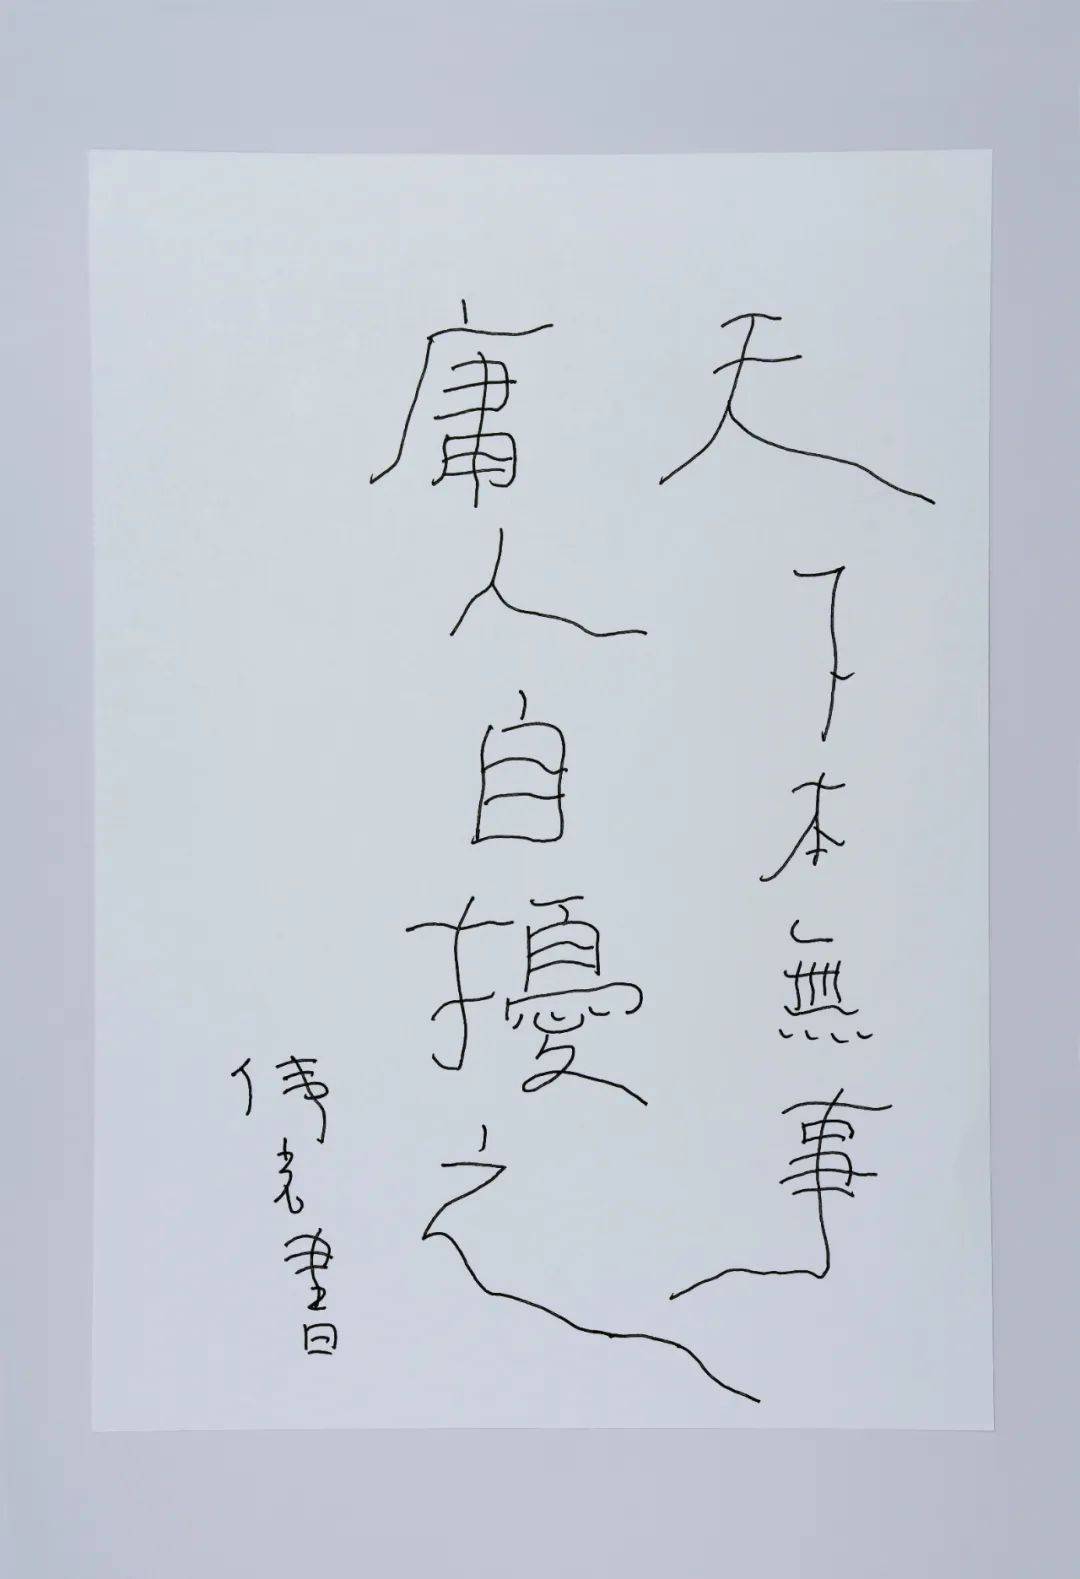 天下本無事
庸人自擾之
伟光書